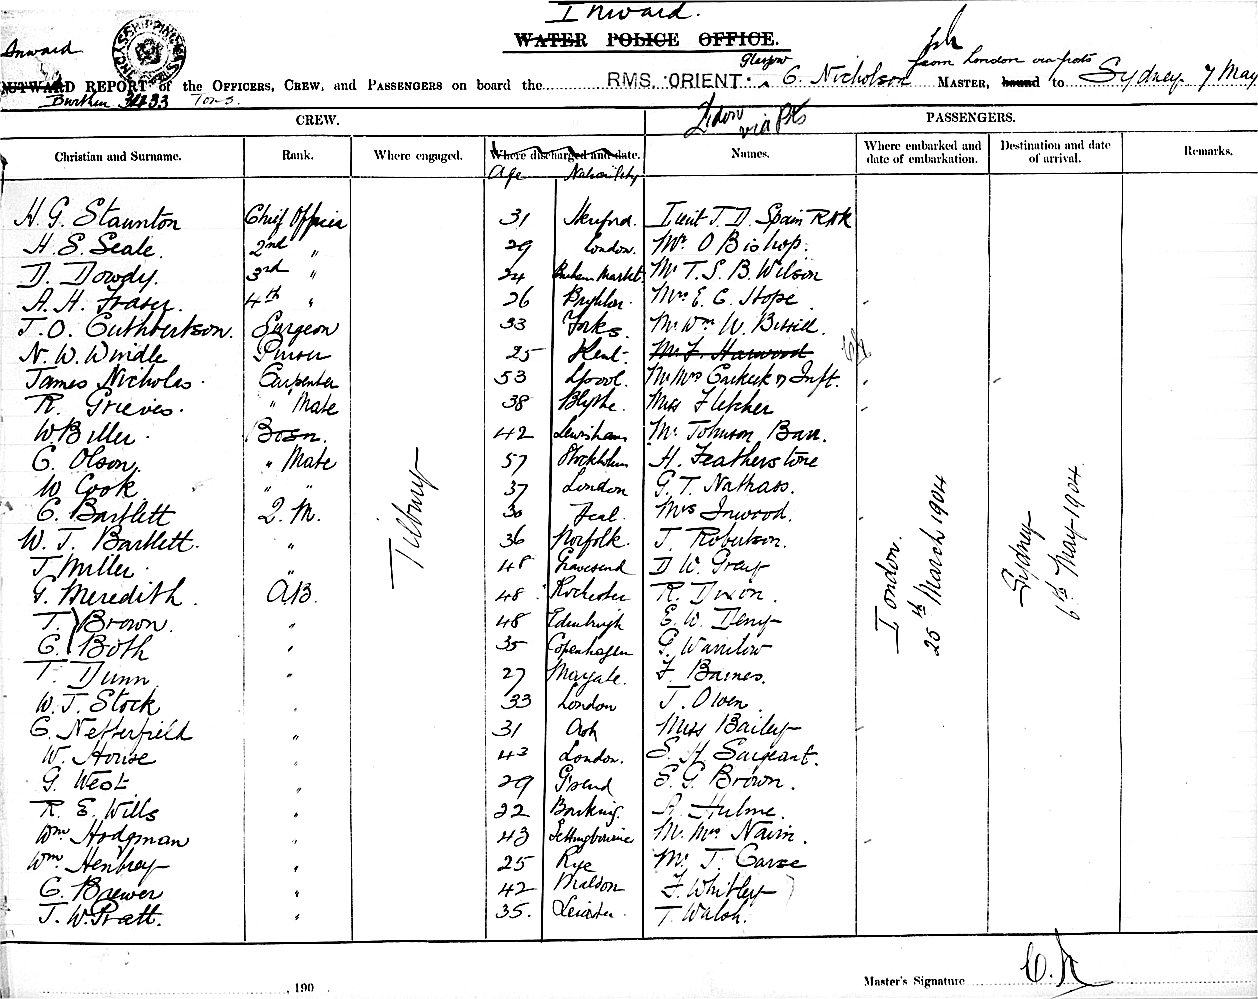 Inward.
WATER POLICE OFFICE.
Inward
OUTWARD REPORT of the OFFICERS, CREW, and PASSENGERS on board the RMS. ORIENT. Glasgow C. Nicholson MASTER, bound to from London via ports Sydney 7 May
Burthen 3433 Tons.
CREW. London via Pts PASSENGERS.
Christian and Surname. Rank. Where engaged. Where discharged and date. Names. Where embarked and date of embarkation. Destination and date of arrival. Remarks.
Age Nationality
H. G. Staunton Chief Officer 31 Hereford. Lieut J. D. Spain
H. S. Seale. 2nd " 29 London. Mr O Bishop.
D. Dowdy. 3rd " 24 Burnham Market. Mr T. S. B. Wilson
A. H. Fraser. 4th " 26 Brighton. Mrs E. C. Hope
J. O. Cuthbertson. Surgeon 33 Yorks. Mr Wm W.
N. W. Windle Purser 25 Kent. Mr F. Harwood
James Nicholas. Carpenter 53 Lpool. Mr Mrs & Inft.
R. Grieves. " Mate 38 Blythe. Miss Fletcher
W Biller. Bosn. 42 Lewisham Mr Johnson Barr.
C. Olson. " Mate 57 Stockholm H. Featherstone
W Cook. " " 37 London G. T. Nathass.
C. Bartlett 2. M. 30 Deal. Mrs Inwood.
W. J. Bartlett. " 36 Norfolk J. Robertson.
J. Miller. " 48 Gravesend D W. Gray
G. Meredith. AB. 48 Rochester R. Dixon.
T. Brown. " 48 Edinburgh E. W. Deny
C. Both " 35 Copenhagen G. Wanilow
T. Dunn " 27 Margate. F. Barnes.
W. J. Stock " 33 London J. Owen.
C. Netterfield " 31 Ash Miss Bailey
W. House " 43 London. S. H Sargeant.
G. West. " 29 Gsend E. G. Brown.
R. E. Wills " 22 Barking. A. Hulme.
Wm Hodgman " 43 Sittingbourne Mr Mrs Nairn.
Wm Henbrey " 25 Rye Mr J. Carse
C. Brewer " 42 Maldon F. Whitley
J. W. Pratt. " 35. Leicester T. Walsh.
Tilbury
London.
25th March 1904
Sydney
6th May 1904
, 190
Master's Signature C. N